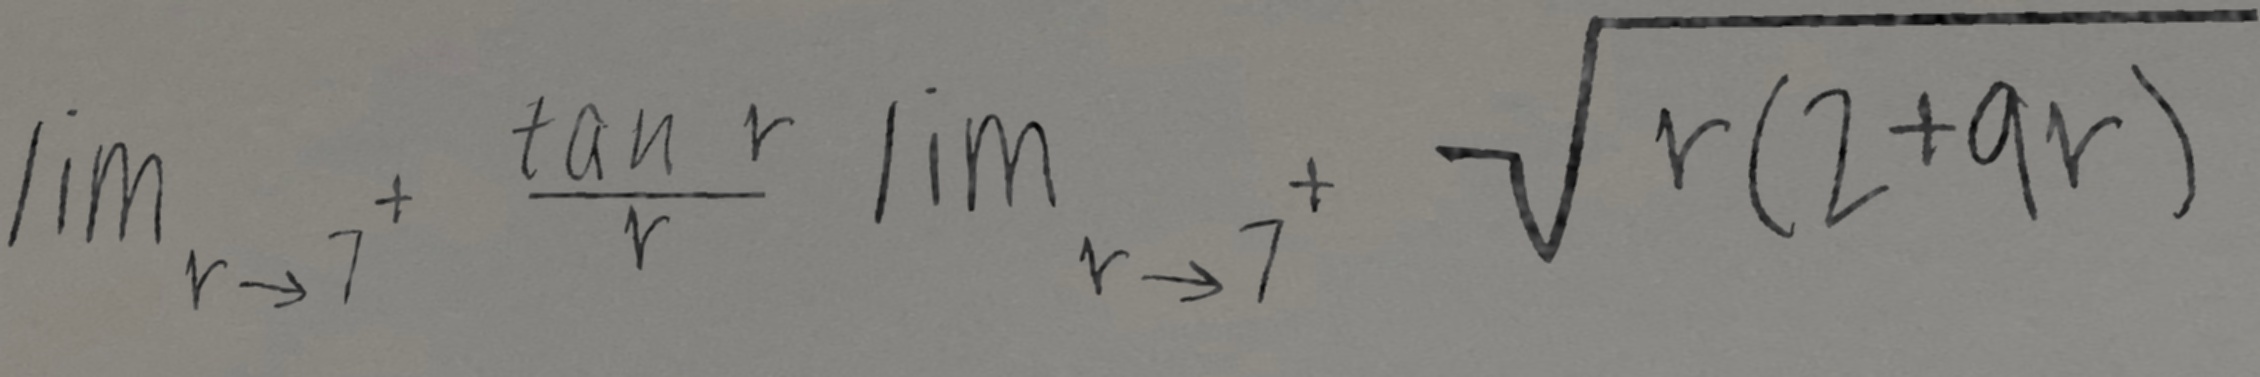 \lim_{r \to 7^+} \frac{\tan r}{r} \lim_{r \to 7^+} \sqrt{r(2+9r)}